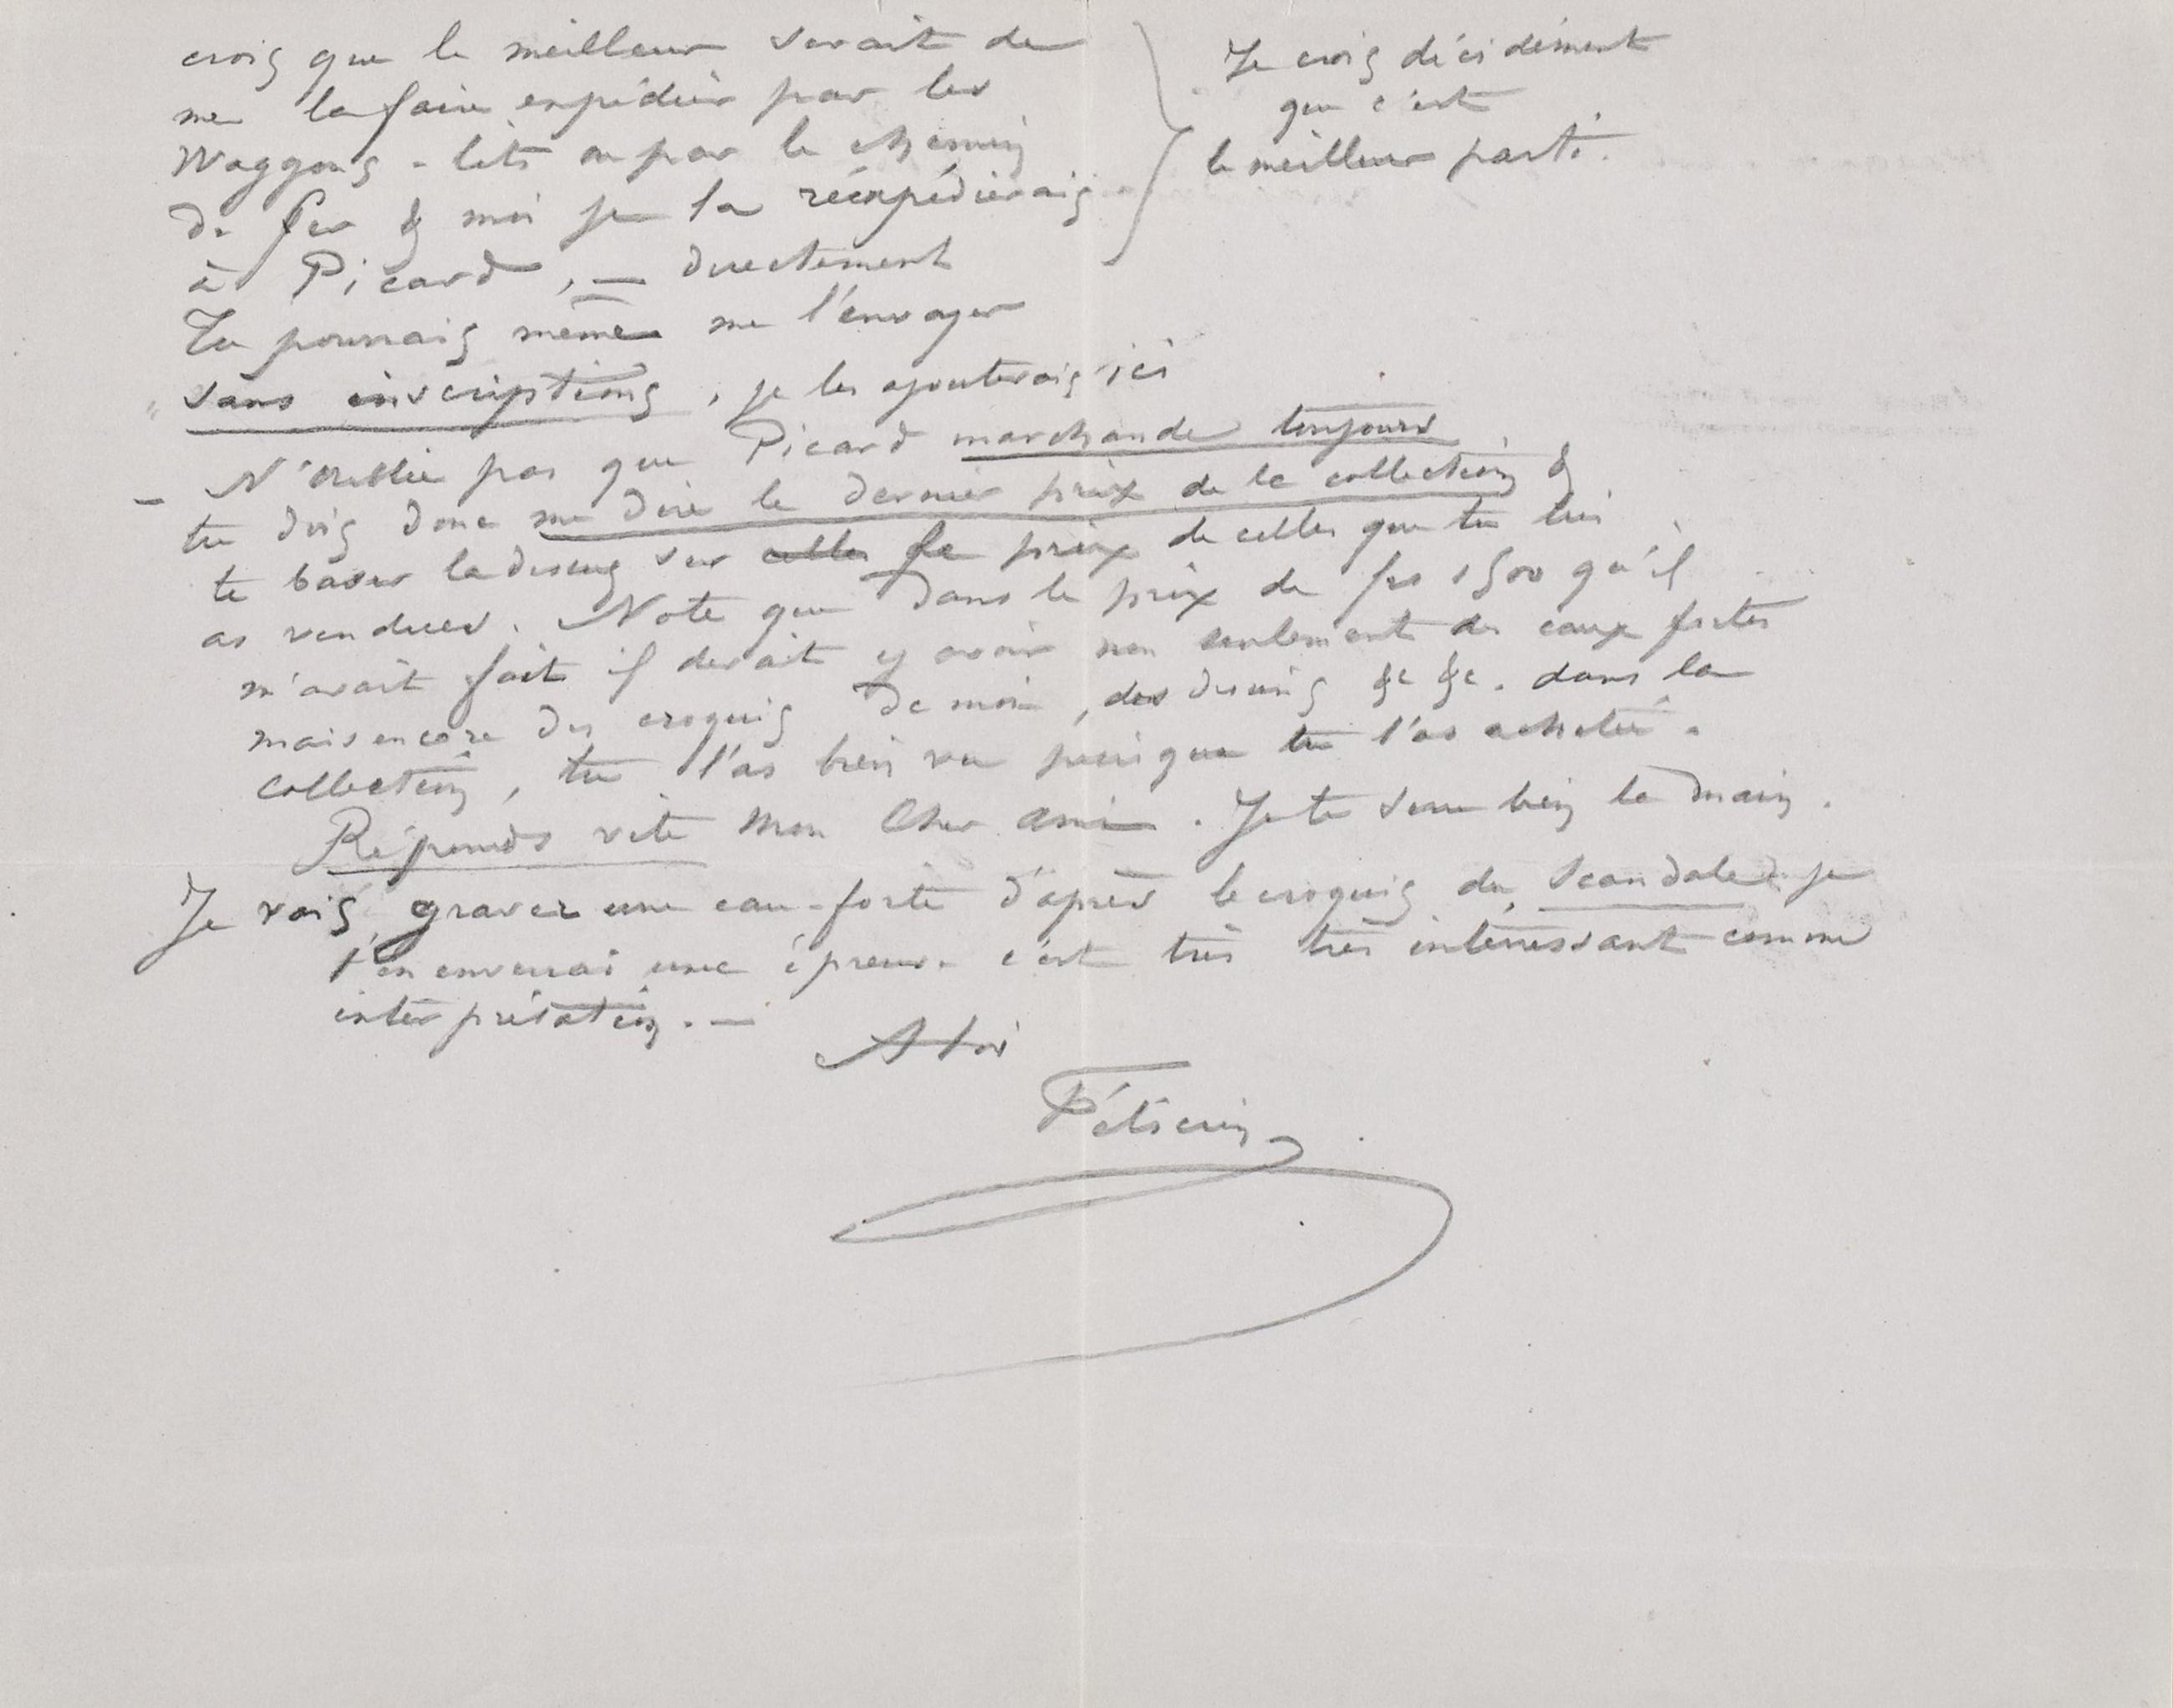 crois que le meilleur serait de
me la faire expédier par les
Waggons-lits ou par le chemin
de fer & moi je la réexpédierais
à Picard, — directement
Je crois décidément
que c'est
le meilleur parti.
Tu pourrais même me l'envoyer
sans inscriptions, je les ajouterais ici
— N'oublie pas que Picard marchande toujours
tu dois donc me dire le dernier prix de la collection &
te baser ladessus sur celles le prix de celles que tu lui
as vendues. Note que dans le prix de frs 1500 qu'il
m'avait fait il devait y avoir non seulement des eaux fortes
mais encore des croquis de moi, des dessins &c &c. dans la
collection, tu l'as bien vu puisque tu l'as achetée.
Réponds vite Mon Cher Ami. Je te serre bien la main.
Je vais graver une eau-forte d'après le croquis du Scandale je
t'en enverrai une épreuve c'est très très intéressant comme
interprétation. —
A toi
Félicien